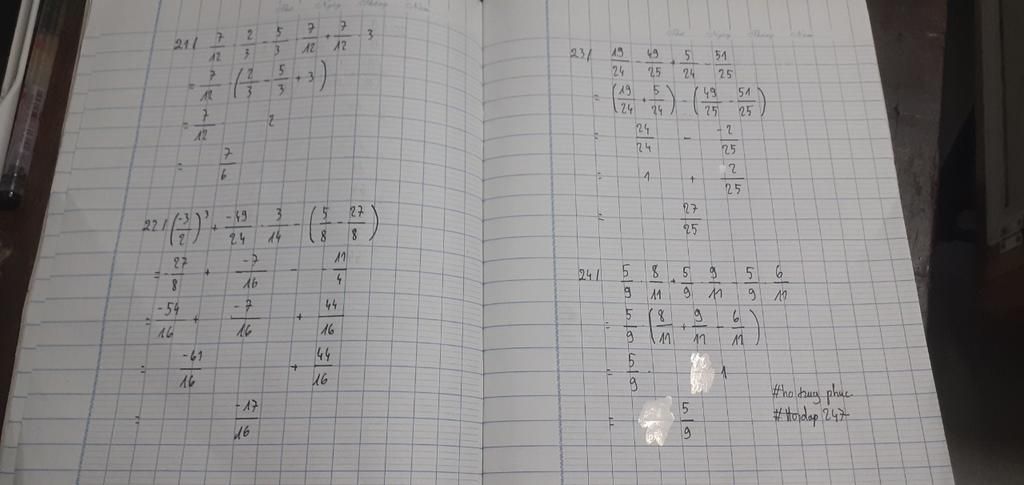 21/ 7/12 · 2/3 - 5/3 · 7/12 + 7/12 · 3
= 7/12 · (2/3 - 5/3 + 3)
= 7/12 · 2
= 7/6
22/ (-3/2)³ + -49/24 · 3/14 - (5/8 - 27/8)
= -27/8 + -7/16 - -11/4
= -54/16 + -7/16 + 44/16
= -61/16 + 44/16
= -17/16
23/ 19/24 - 49/25 + 5/24 - 51/25
= (19/24 + 5/24) - (49/25 - 51/25)
= 24/24 - -2/25
= 1 + 2/25
= 27/25
24/ 5/9 · 8/11 + 5/9 · 9/11 - 5/9 · 6/11
= 5/9 · (8/11 + 9/11 - 6/11)
= 5/9 · 1
= 5/9
#hoàng phúc
#Hoidap 247